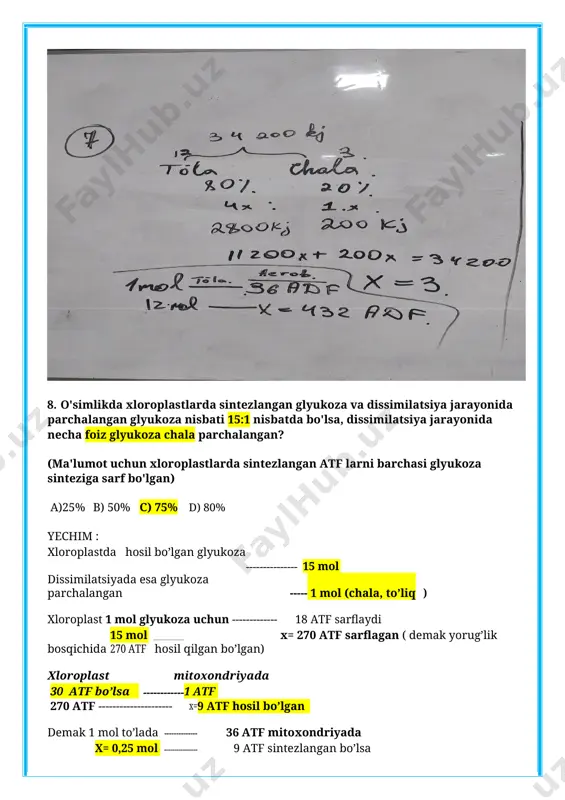 7
34 200 kj
12 3.
Tóla Chala
80% 20%
4x : 1.x.
2800kj 200 kj
11200x + 200x = 34200
1mol Tóla. Aerob. 36 ADF X = 3.
12 mol — X = 432 ADF.
8. O'simlikda xloroplastlarda sintezlangan glyukoza va dissimilatsiya jarayonida
parchalangan glyukoza nisbati 15:1 nisbatda bo'lsa, dissimilatsiya jarayonida
necha foiz glyukoza chala parchalangan?
(Ma'lumot uchun xloroplastlarda sintezlangan ATF larni barchasi glyukoza
sinteziga sarf bo'lgan)
A)25% B) 50% C) 75% D) 80%
YECHIM :
Xloroplastda hosil bo’lgan glyukoza
---------------- 15 mol
Dissimilatsiyada esa glyukoza
parchalangan ----- 1 mol (chala, to’liq )
Xloroplast 1 mol glyukoza uchun ------------- 18 ATF sarflaydi
15 mol x= 270 ATF sarflagan ( demak yorug’lik
bosqichida 270 ATF hosil qilgan bo’lgan)
Xloroplast mitoxondriyada
30 ATF bo’lsa ------------1 ATF
270 ATF ---------------------- x=9 ATF hosil bo’lgan
Demak 1 mol to’lada ------------- 36 ATF mitoxondriyada
X= 0,25 mol ------------- 9 ATF sintezlangan bo’lsa
FaylHub.uz